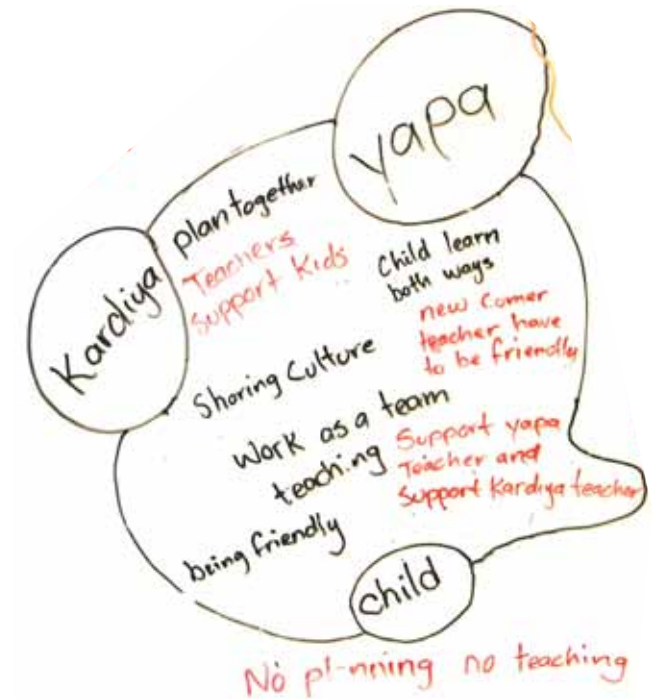 yapa
Kardiya
plan together
Teachers
Support Kids
Child learn
both ways
new comer
teacher have
to be friendly
Sharing Culture
Work as a team
teaching
Support yapa
Teacher and
Support Kardiya teacher
being friendly
child
No pl-nning no teaching